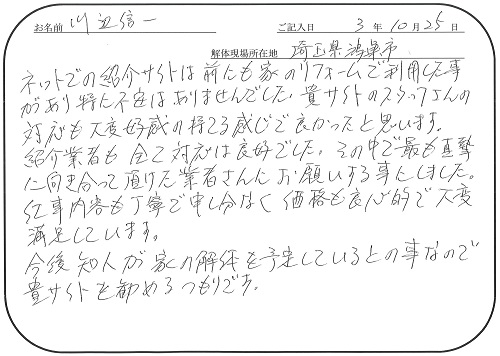 お名前 川辺信一 ご記入日 3 年 10 月 25 日
解体現場所在地 埼玉県鴻巣市
ネットでの紹介サイトは前にも家のリフォームで利用した事
があり特に不安はありませんでした。貴サイトのスタッフさんの
対応も大変好感の持てる感じで良かったと思います。
紹介業者も全て対応は良好でした。その中で最も真摯
に向き合って頂けた業者さんにお願いする事にしました。
仕事内容も丁寧で申し分なく価格も良心的で大変
満足しています。
今後知人が家の解体を予定しているとの事なので
貴サイトを勧めるつもりです。